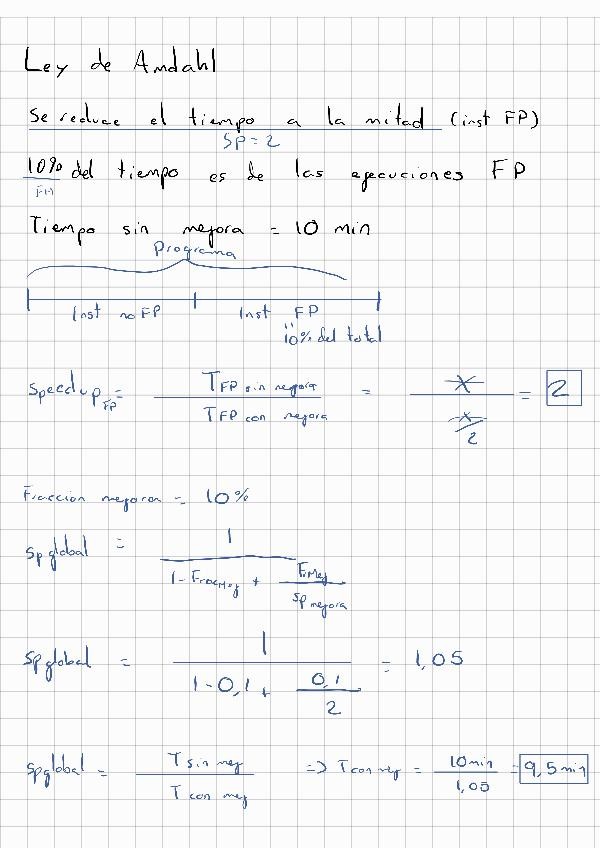 Ley de Amdahl
Se reduce el tiempo a la mitad (inst FP)
SP=2
10% del tiempo es de las ejecuciones FP
FM
Tiempo sin mejora = 10 min
Programa
Inst no FP Inst FP
10% del total
Speedup FP = T FP sin mejora / T FP con mejora = x / x/2 = 2
Fraccion mejora = 10%
Sp global = 1 / 1 - FracMej + FrMej / SP mejora
Sp global = 1 / 1-0,1 + 0,1 / 2 = 1,05
Sp global = T sin mej / T con mej => T con mej = 10 min / 1,05 = 9,5 min